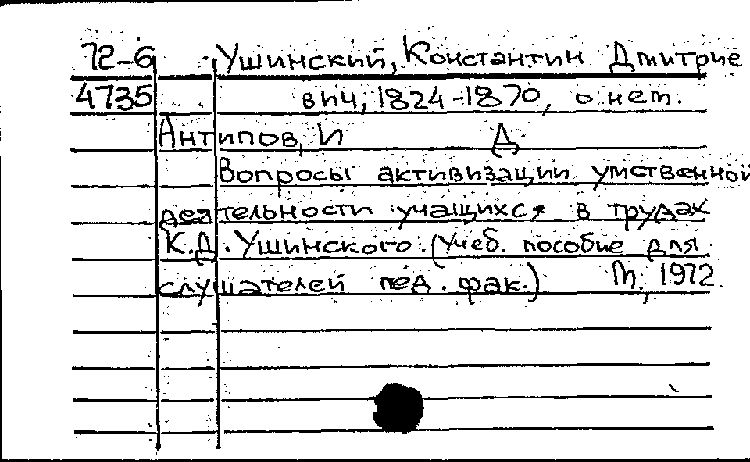 72-6 Ушинский, Константин Дмитрие
4735 вич, 1824-1870, о нем.
Антипов, И Д
Вопросы активизации умственной
деятельности учащихся в трудах
К.Д. Ушинского. (Учеб. пособие для
слушателей пед. фак.) М., 1972.